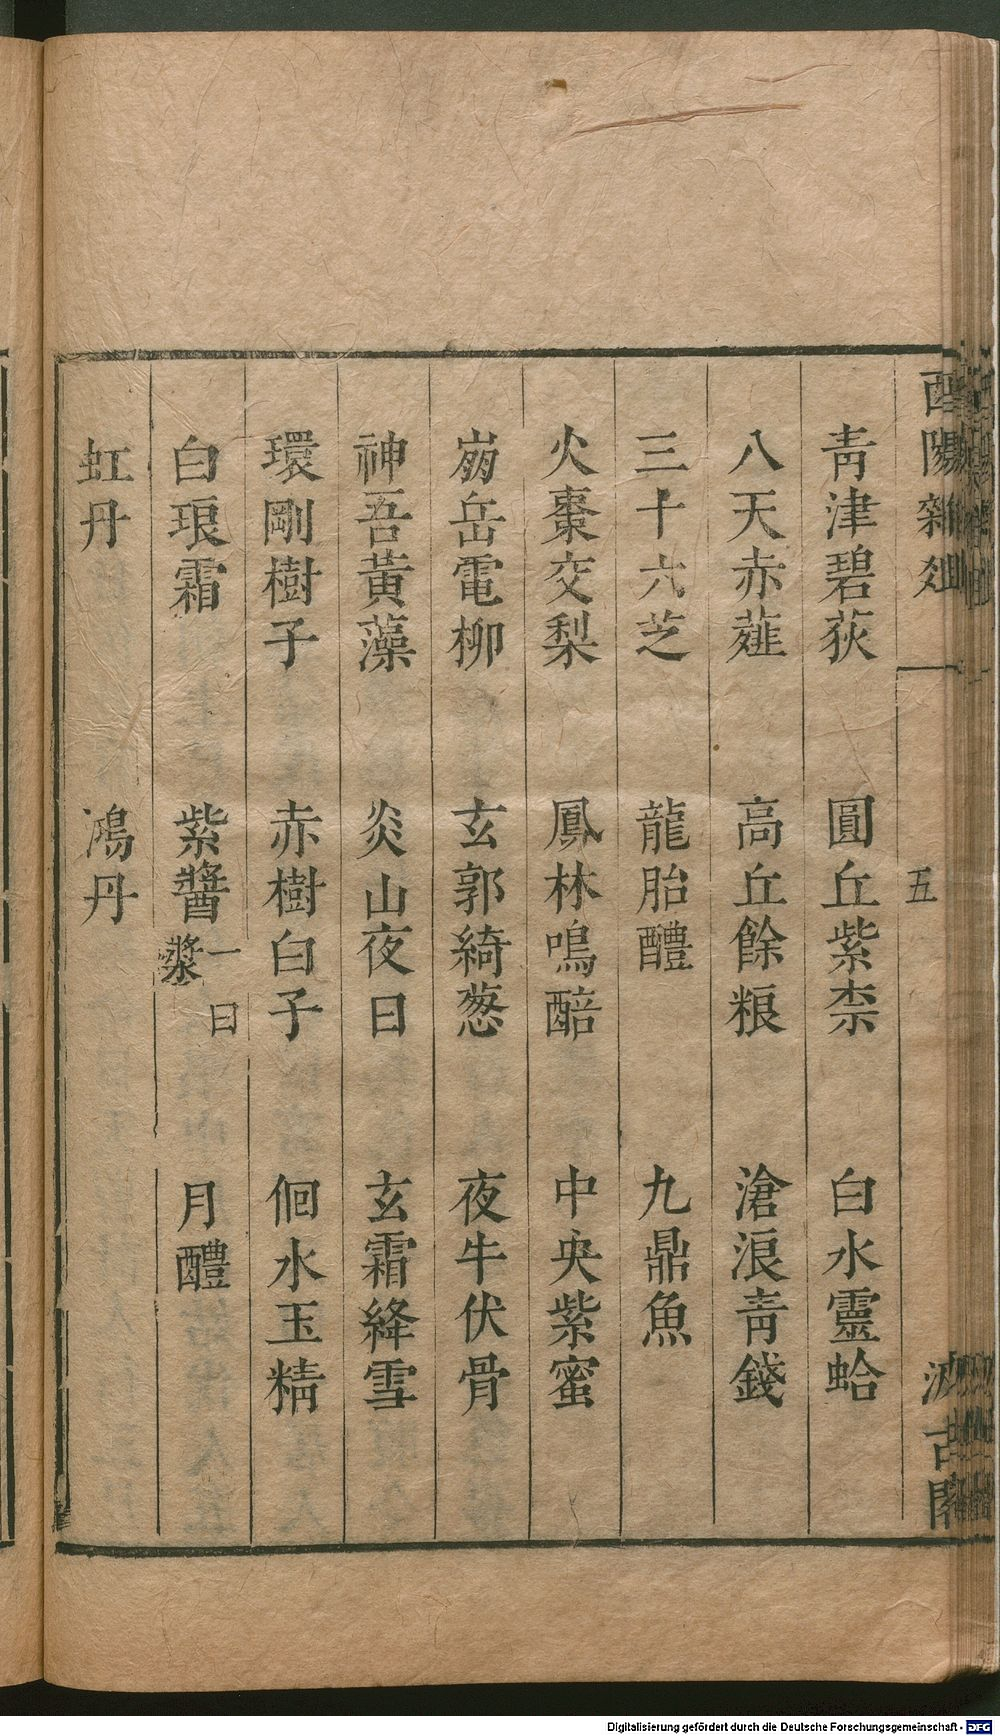 酉陽雜俎
五
汲古閣
青津碧荻 圓丘紫柰 白水靈蛤
八天赤薤 高丘餘粮 滄浪青錢
三十六芝 龍胎醴 九鼎魚
火棗交梨 鳳林鳴醅 中央紫蜜
崩岳電柳 玄郭綺葱 夜牛伏骨
神吾黃藻 炎山夜日 玄霜絳雪
環剛樹子 赤樹白子 佪水玉精
白琅霜 紫醬 一曰漿 月醴
虹丹 鴻丹
Digitalisierung gefördert durch die Deutsche Forschungsgemeinschaft - DFG